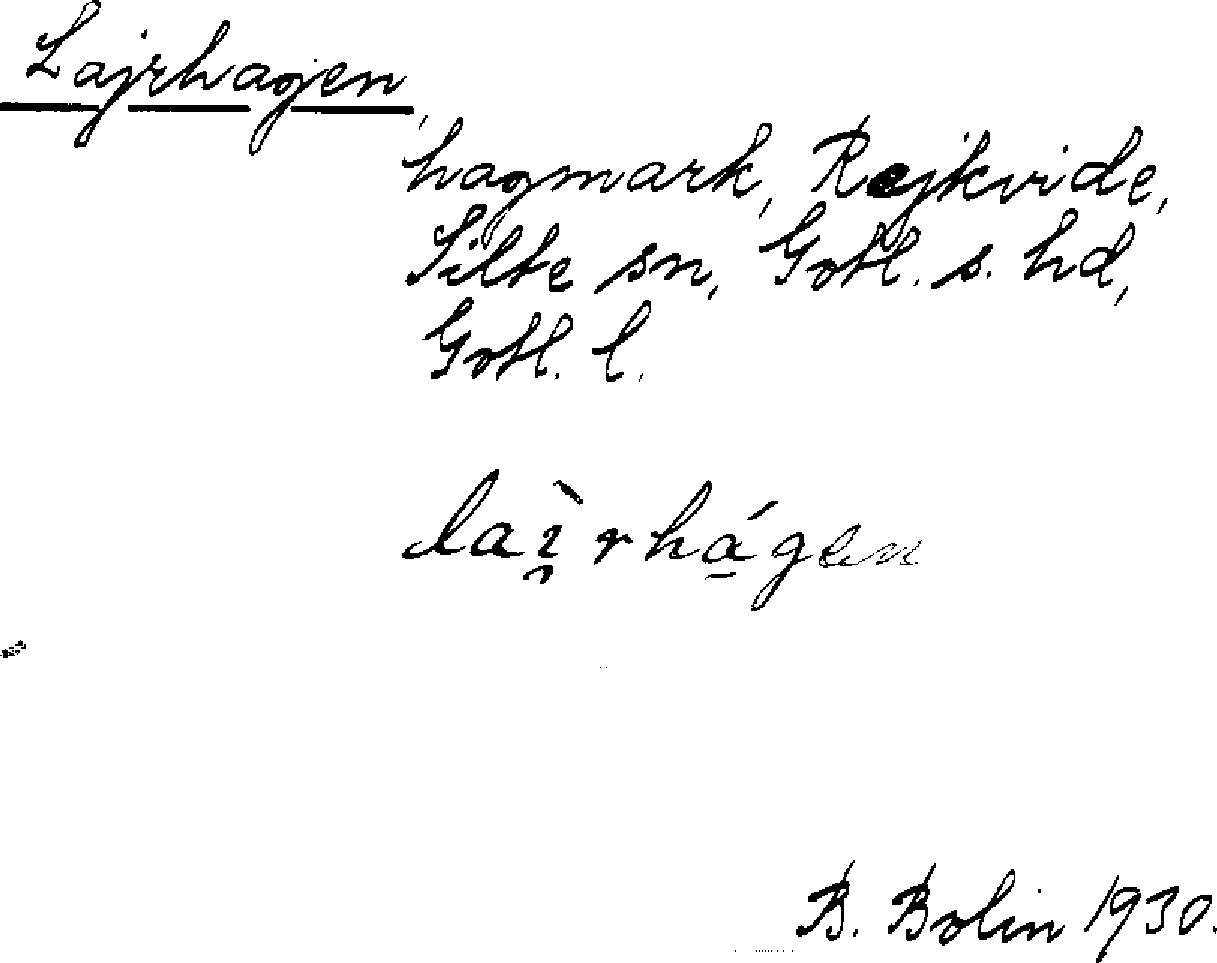 Lajrhagen,
hagmark, Rejkvide,
Silte sn, Gotl. s. hd,
Gotl. l.
laì̯rhá̱gen
B. Bolin 1930.